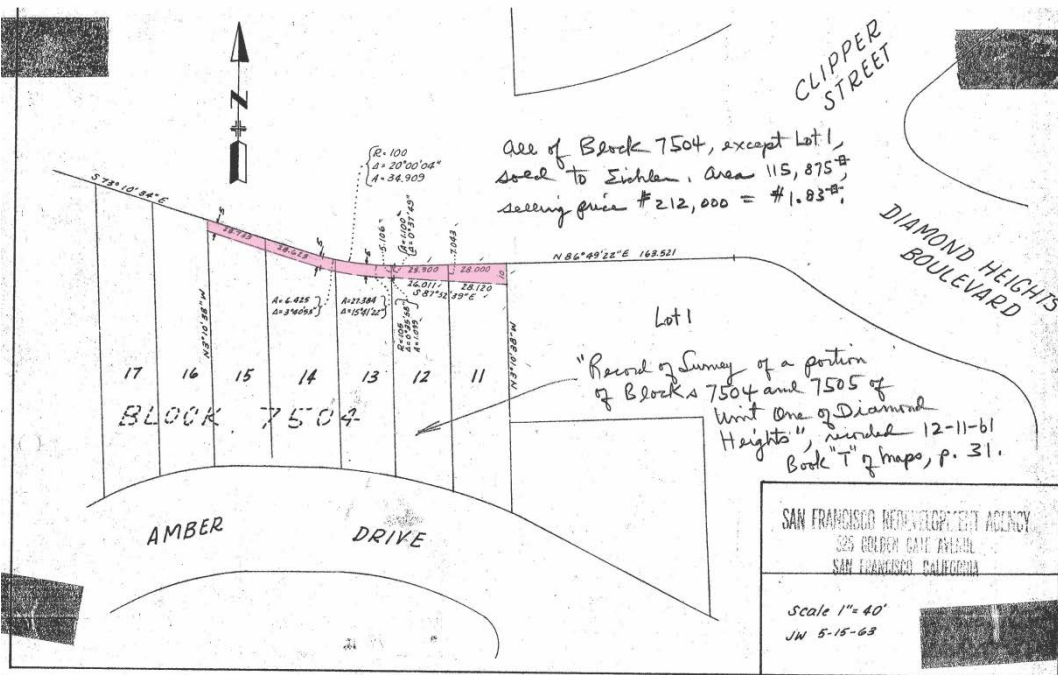 CLIPPER
STREET
N
R=100
Δ=20°00'04"
A=34.909
All of Block 7504, except Lot 1,
sold to Eichler. Area 115,875
selling price $212,000 = $1.83
DIAMOND HEIGHTS
BOULEVARD
S 73°10'34" E
5
28.623
5
5
5.106
R=1100
Δ=0°37'49"
7.043
N 86°49'22" E 163.521
28.900
28.000
10
26.011
28.120
S 87°52'39" E
A=6.425
Δ=3°40'55"
A=27.384
Δ=15°41'22"
R=105
A=1.099
N3°10'38"W
N3°10'38"W
Lot 1
"Record of Survey of a portion
of Blocks 7504 and 7505 of
Unit One of Diamond
Heights", recorded 12-11-61
Book "T" of maps, p. 31.
17 16 15 14 13 12 11
BLOCK 7504
AMBER DRIVE
SAN FRANCISCO REDEVELOPMENT AGENCY
525 GOLDEN GATE AVENUE
SAN FRANCISCO, CALIFORNIA
Scale 1"=40'
JW 5-15-63